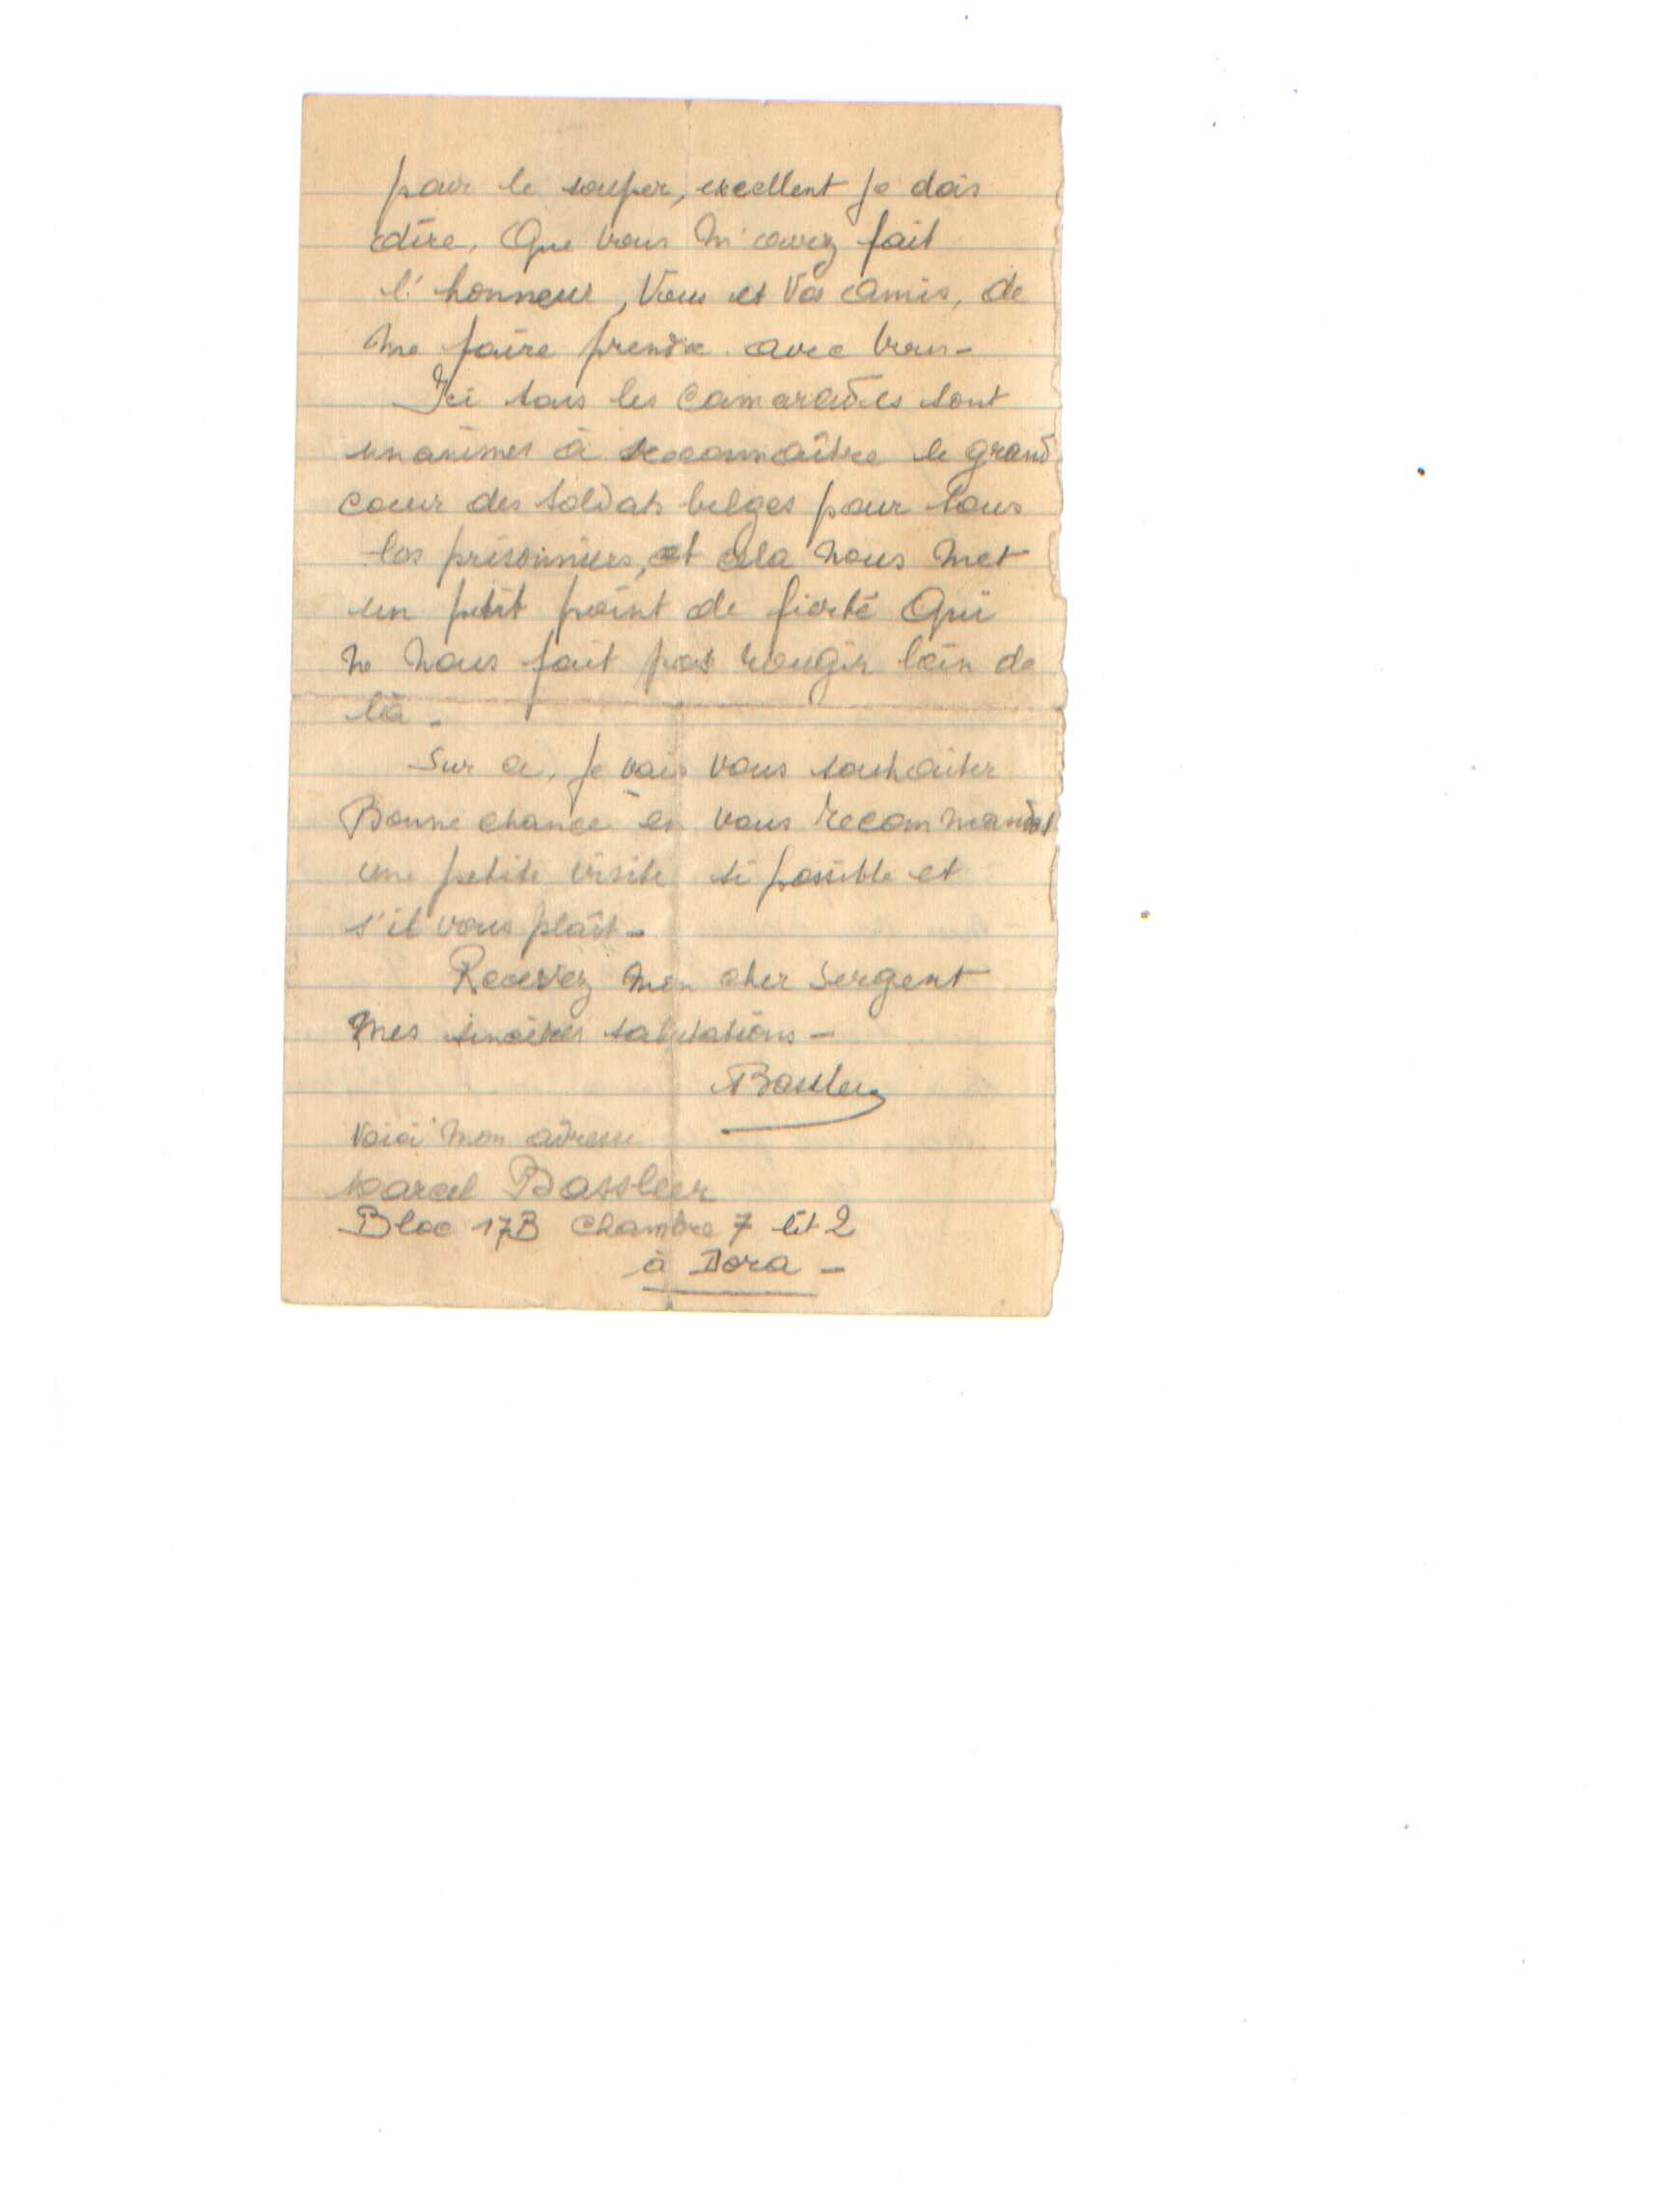 pour le souper, excellent je dois
dire, Que vous m'avez fait
l'honneur, Vous et Vos amis, de
me faire prendre avec vous -
Ici tous les camarades sont
unanimes à reconnaître le grand
coeur des soldats belges pour tous
les prisonniers, et cela nous met
un petit point de fierté Qui
ne nous fait pas rougir loin de
là -
Sur ce, je vais vous souhaiter
Bonne chance en vous recommandant
une petite visite si possible et
s'il vous plaît -
Recevez mon cher Sergent
mes sincères salutations -
Bassleer
Voici mon adresse
Marcel Bassleer
Bloc 17B Chambre 7 lit 2
à Dora -